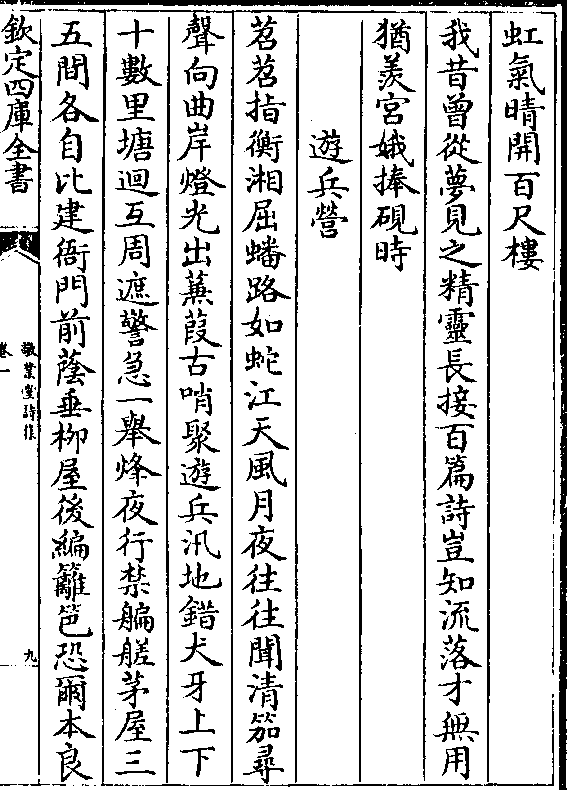 虹氣晴開百尺樓
我昔曾從夢見之精靈長接百篇詩豈知流落才無用
猶羡宮娥捧硯時
遊兵營
苕苕指衡湘屈蟠路如蛇江天風月夜往往聞清笳尋
聲向曲岸燈光出蒹葭古哨聚遊兵汛地錯犬牙上下
十數里塘迴互周遮警急一舉烽夜行禁艑艖茅屋三
五間各自比建衙門前蔭垂栁屋後編籬笆恐爾本良
欽定四庫全書
敬業堂詩集
卷一
九